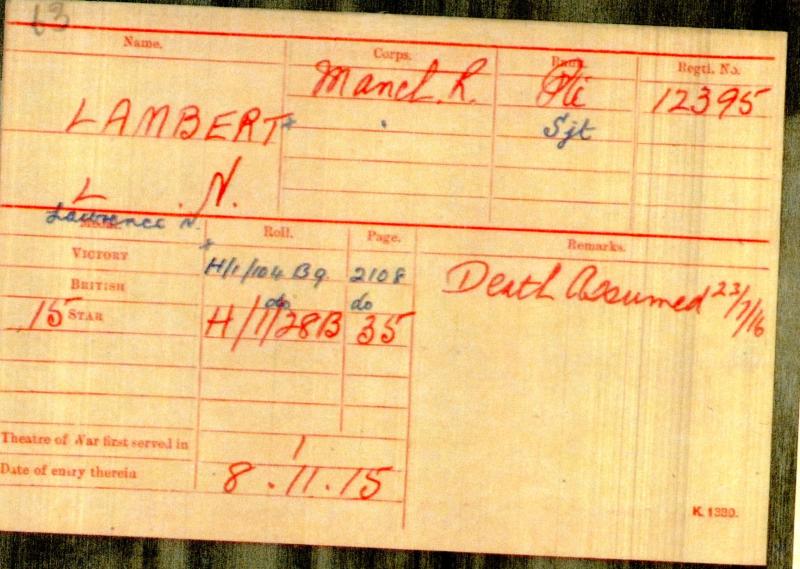 63
Name. Corps. Rank. Regtl. No.
Manch. R. Pte 12395
LAMBERT * Sjt
L. N.
Lawrence N.
Medal. Roll. Page. Remarks.
*
VICTORY H/1/104 B9 2108 Death Assumed 23/7/16
BRITISH do do
15 STAR H/1/28B 35
Theatre of War first served in 1
Date of entry therein 8.11.15
K. 1380.